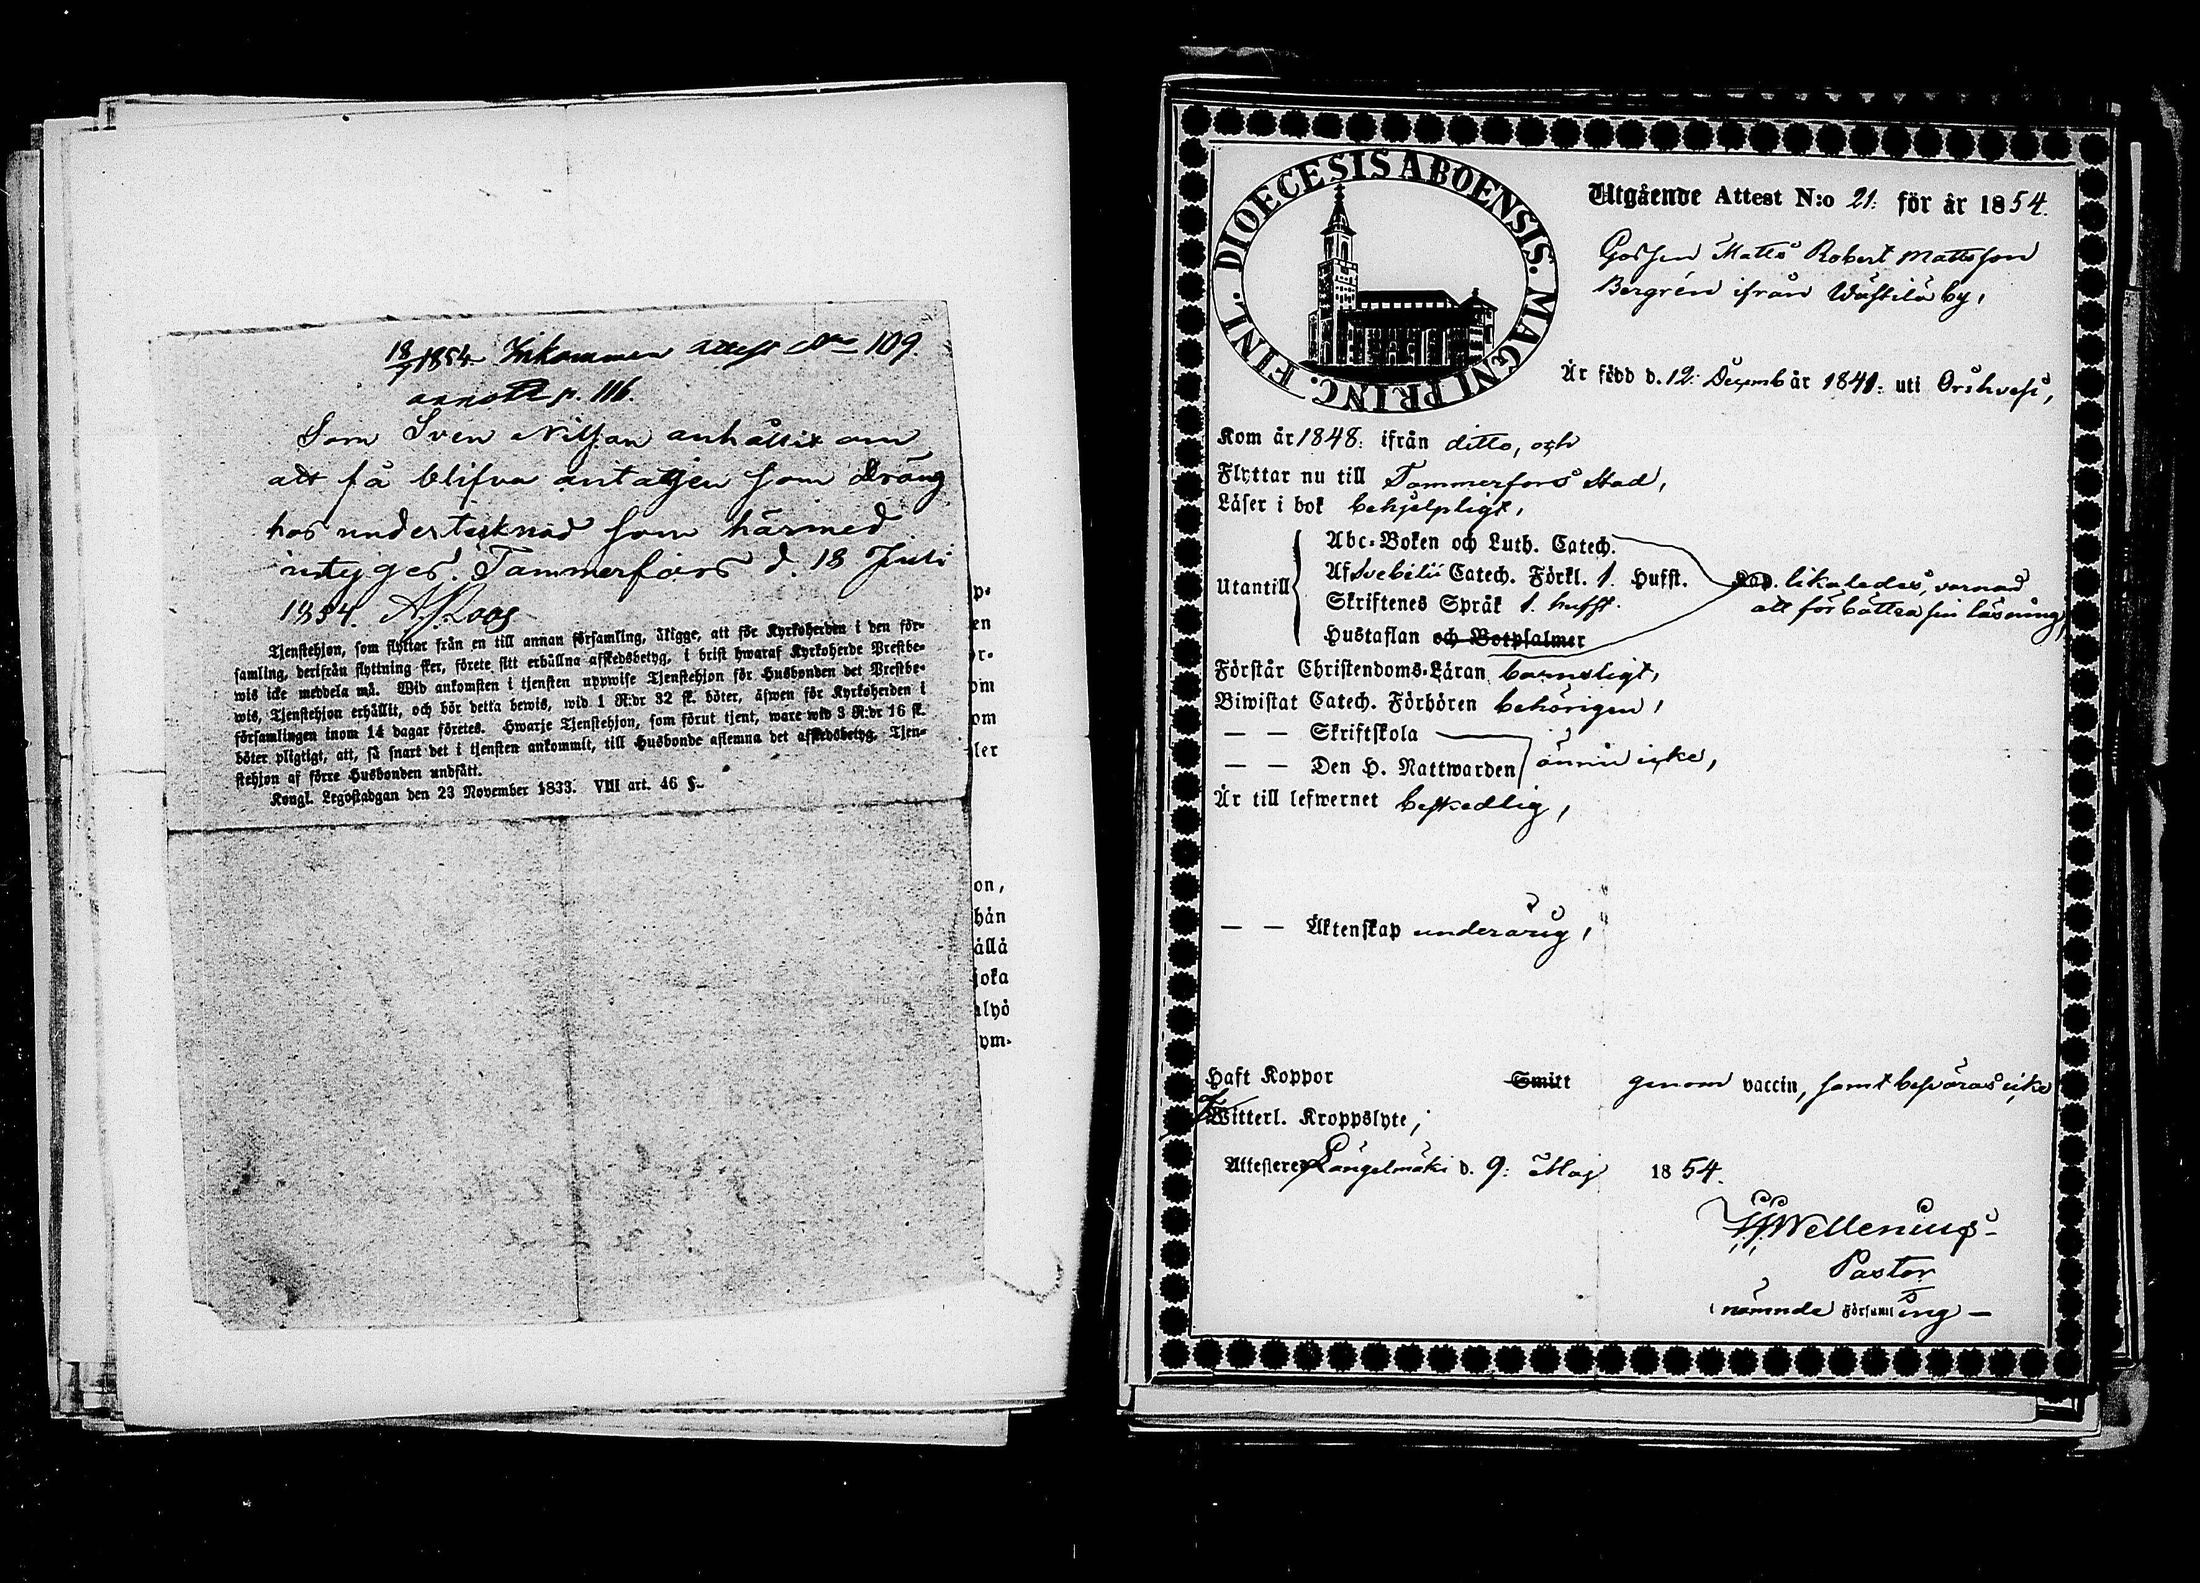 18/7 1854. Inkommen Attest No 109.
annott. p. 116.
Som Sven Nilsson anhållit om
att få blifva antagen som dräng
hos undertecknad som härmed
intygas. Tammerfors d. 18 Juli
1854.
Tjenstehjon, som flyttar från en till annan församling, åligge, att för Kyrkoherden i den för-
samling, derifrån flyttning sker, förete sitt erhållna afskedsbetyg, i brist hwaraf Kyrkoherde Prestbe-
wis icke meddela må. Wid ankomsten i tjensten uppwise Tjenstehjon för Husbonden det Prestbe-
wis, Tjenstehjon erhållit, och bör detta bewis, wid 1 R:dr 32 sk. böter, äfwen för Kyrkoherden i
församlingen inom 14 dagar företes. Hwarje Tjenstehjon, som förut tjent, ware wid 3 R:dr 16 sk.
böter pligtigt, att, så snart det i tjensten ankommit, till Husbonde aflemna det afskedsbetyg Tjen-
stehjon af förre Husbonden undfått.
Kongl. Legostadgan den 23 November 1833. VIII art. 46 §.
p-
en
or-
om
om
ler
on,
hån
ällä
joka
alyö
ym-
DIOECESIS ABOENSIS. MAGNI PRINC. FINL.
Utgående Attest N:o 21. för år 1854.
Gossen Matts Robert Mattsson
Bergrén ifrån Wästilä by,
Är född d. 12: Decemb år 1841: uti Orihvesi,
Kom år 1848: ifrån ditto, och
Flyttar nu till Tammerfors Stad,
Läser i bok behjelpligt,
Utantill
Abc-Boken och Luth. Catech.
Af Svebilii Catech. Förkl. 1. Hufst.
Skriftenes Språk 1. hufst.
Hustaflan och Botpsalmer
likaledes, varnad
att förbättra sin läsning,
Förstår Christendoms-Läran barnsligt,
Biwistat Catech. Förhören behörigen,
— — Skriftskola
— — Den H. Nattwarden
ännu icke,
Är till lefwernet beskedlig,
— — Äktenskap underårig,
Haft Koppor Smitt genom vaccin, samt besväras icke
Witterl. Kroppslyte,
Attesteres Längelmäki d. 9: Maj 1854.
Wellenius
Pastor
i nämnde Församling —